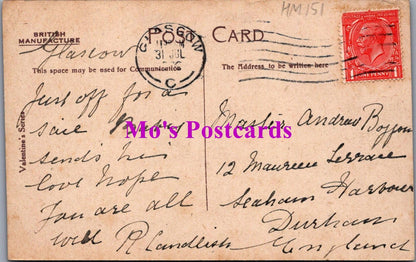 HM151
BRITISH MANUFACTURE
POST CARD
GLASGOW
31 JUL
C
Glascow
This space may be used for Communication
The Address to be written here
Valentine's Series
ONE PENNY
Just off for a
sail
sends his
love hope
you are all
well R Candlish
Mo's Postcards
Master Andrew
12 Maureen Terrace
Seaham Harbour
Durham
England